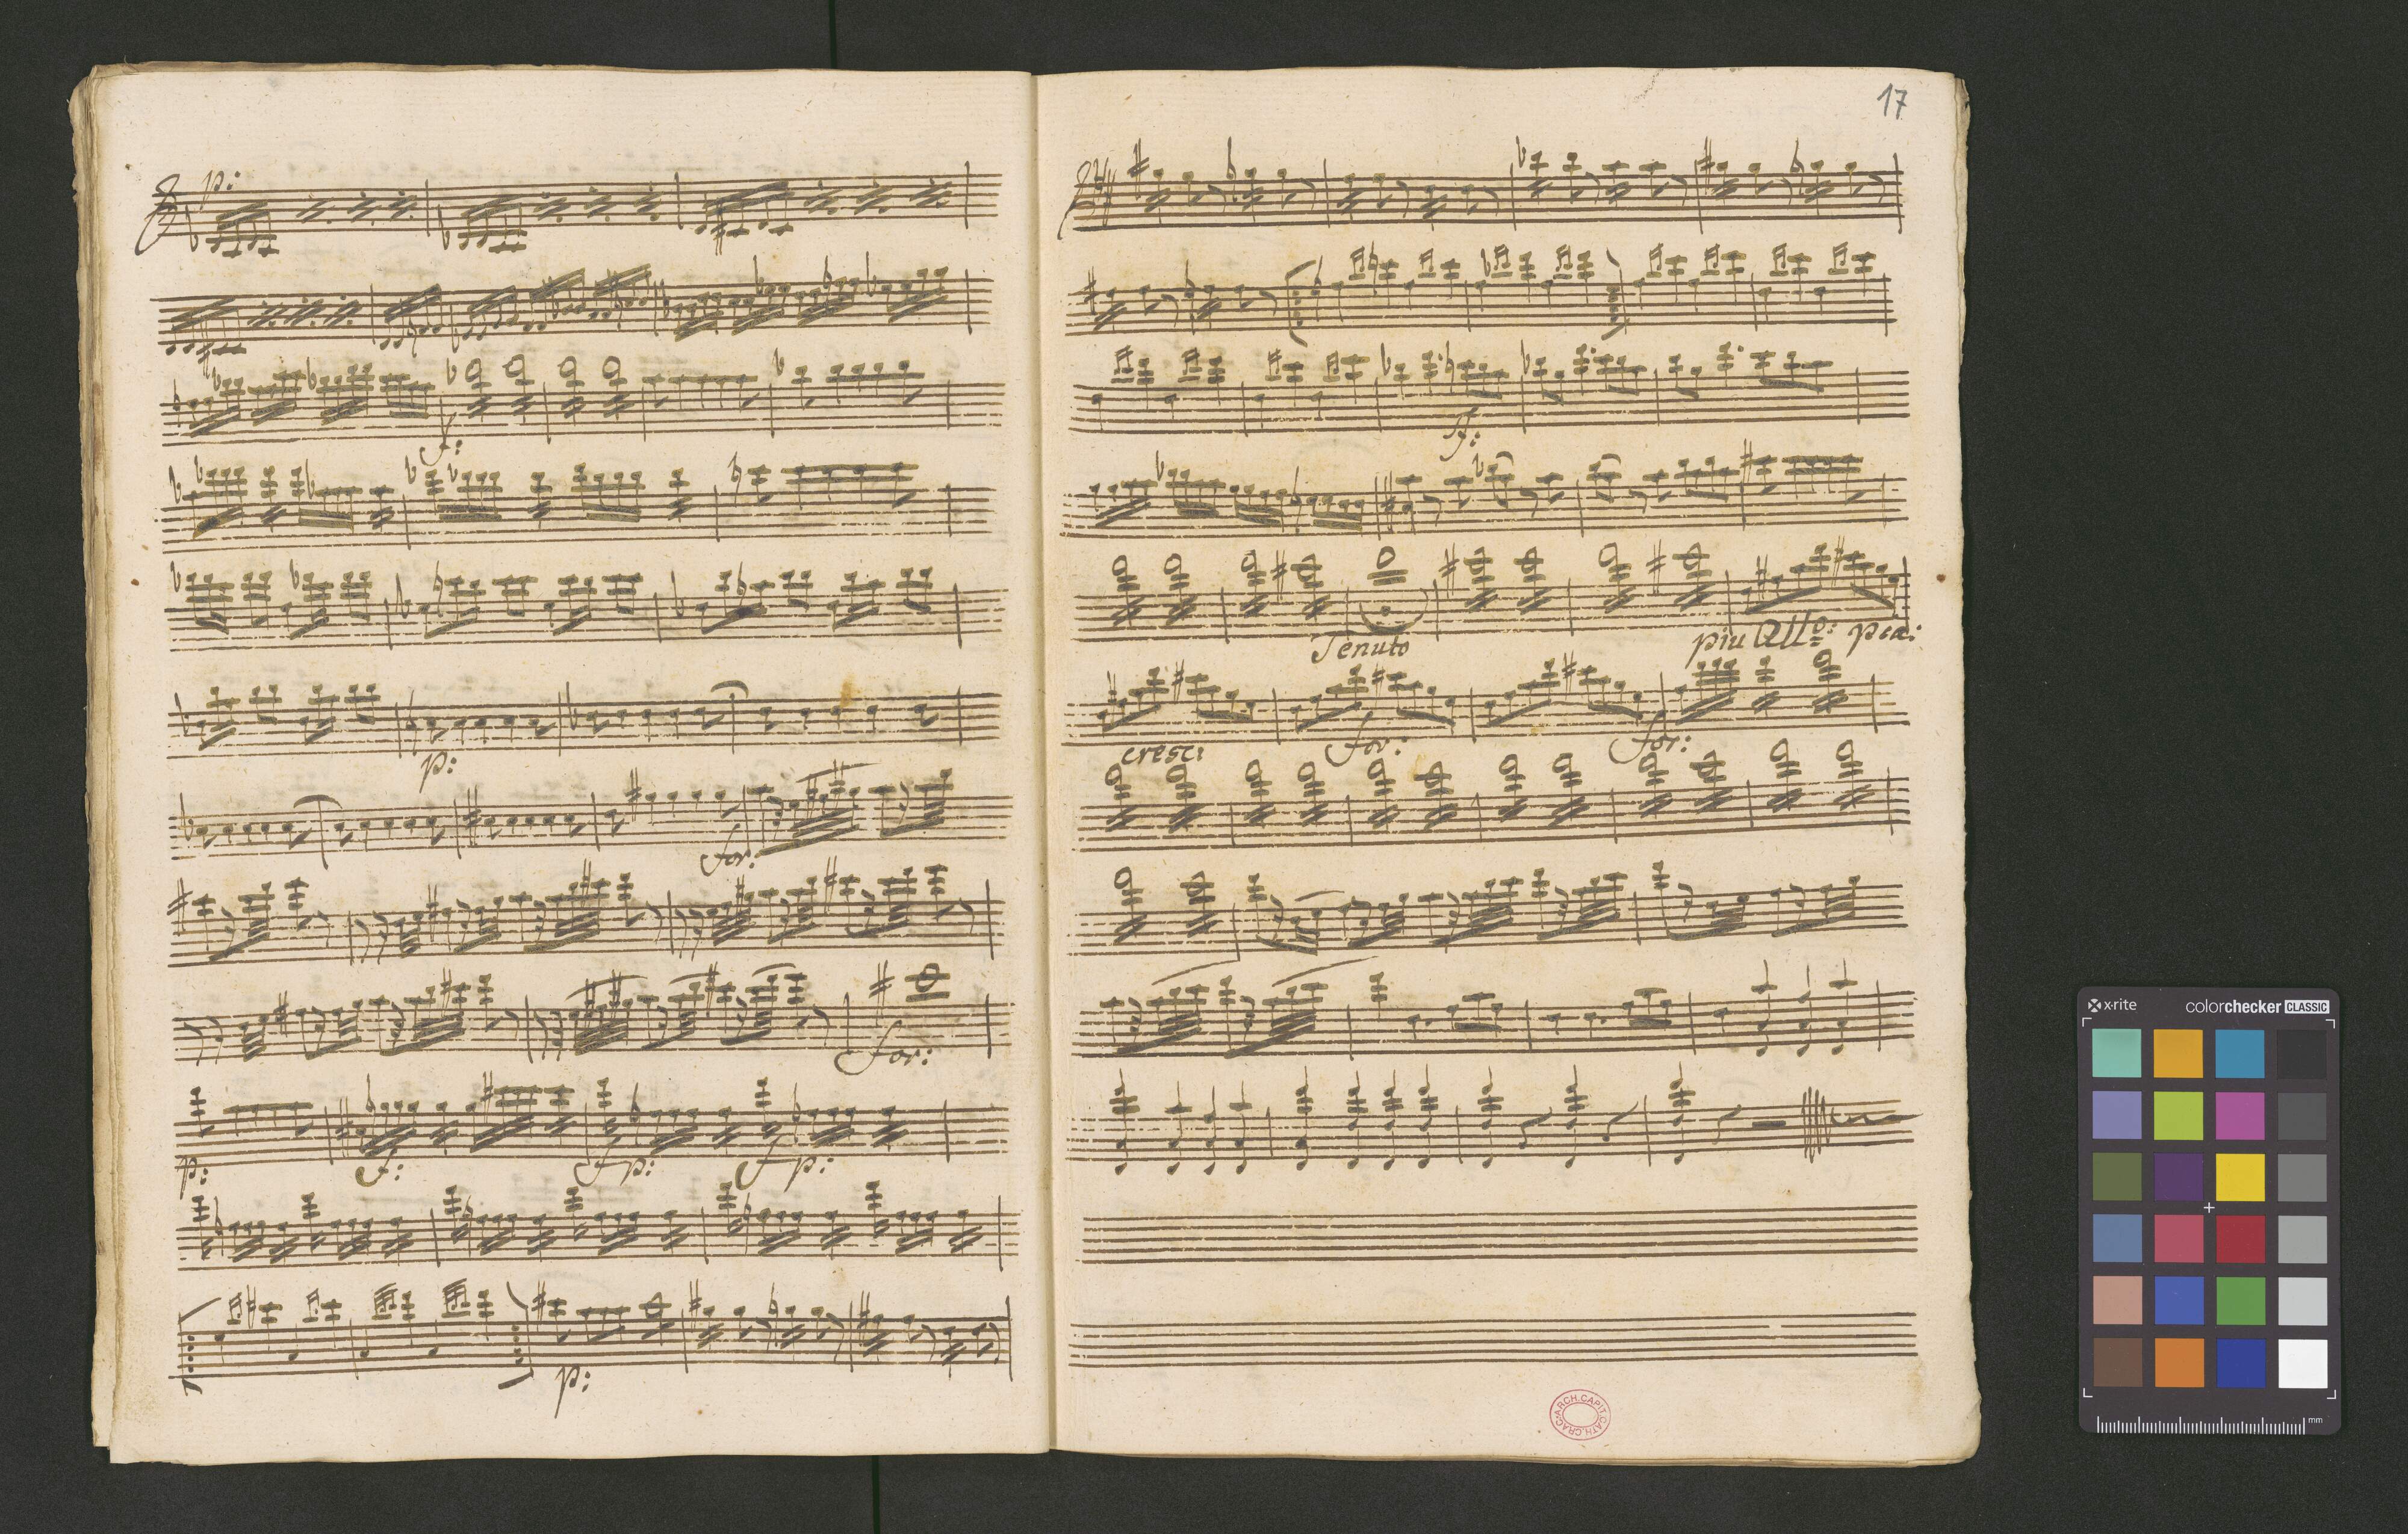 p:
f:
p:
for:
for:
p: f: fp: fp:
p:
17
ff:
Tenuto piu All:o pia:
cresc: for: for:
ARCH.CAPIT.CATH.CRAC.
x·rite colorchecker CLASSIC
mm